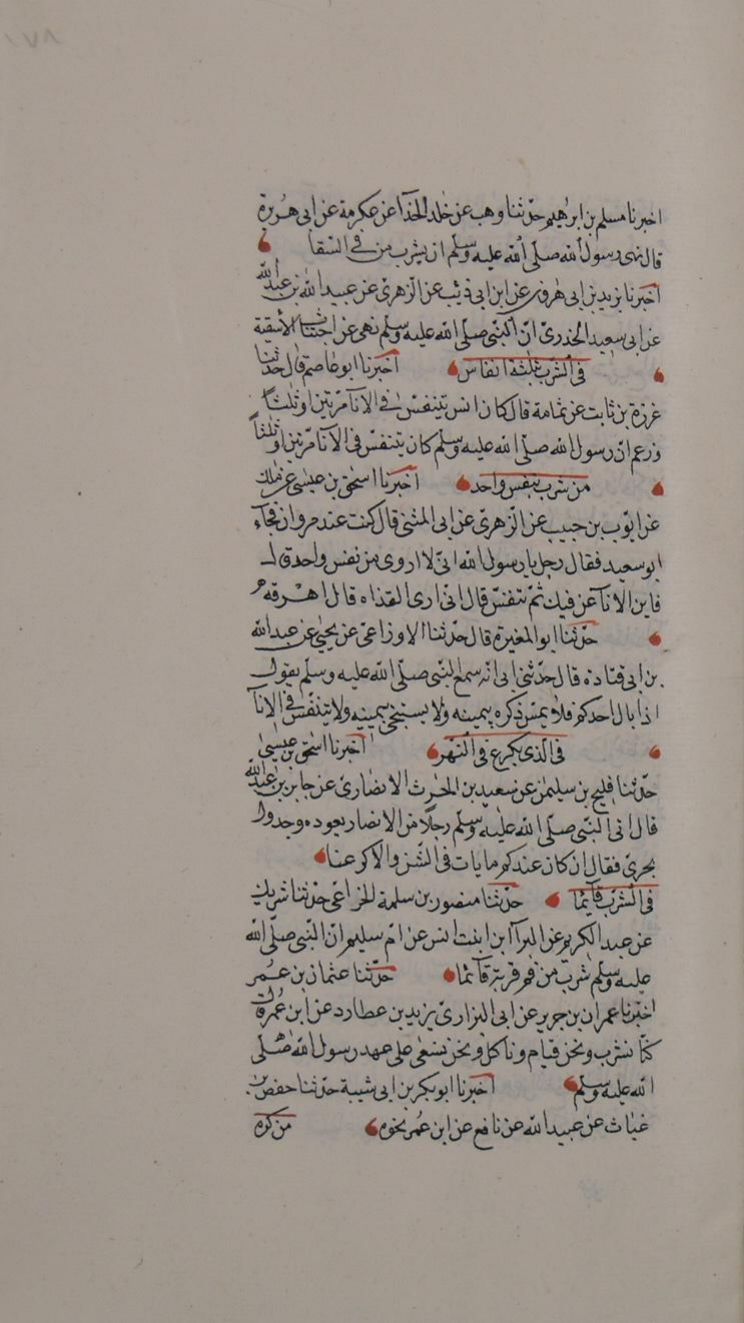 ١٧٨
اخبرنا مسلم بن ابرٰهيم حدّثنا وهب عن خٰلد الحذّا عن عكرمة عن ابى هريرة
قال نهى رسول الله صلّى الله عليه وسلم ان يشرب من فى السّقا
اخبرنا يزيد بن ابى هٰرون عن ابن ابى ذئب عن الزهرىّ عن عبيد الله بن عبد الله
عن ابى سعيد الخدرىّ انّ النّبىّ صلى الله عليه وسلم نهى عن اختناث الاسقية
فى الشرب بثلٰثة انفاس اخبرنا ابو عاصم قال حدّثنا
عزرة بن ثابت عن ثمامة قال كان انس يتنفّس فى الانآ مرّتين او ثلٰثاً
وزعم انّ رسول الله صلّى الله عليه وسلّم كان يتنفّس فى الانآ مرّتين او ثلٰثاً
من شرب بنفس واحد اخبرنا اسحٰق بن عيسٰى عن مٰلك
عن ايّوب بن حبيب عن الزهرىّ عن ابى المثنى قال كنت عند مروان فجآء
ابو سعيد فقال رجل يا رسول الله انّى لا اروى من نفس واحد قال
فابن الانآ عن فيك ثمّ تنفّس قال انّى ارى القذاه قال اهرقه
حدّثنا ابو المغيرة قال حدّثنا الاوزاعىّ عن يحيٰى عن عبد الله
بن ابى قتادة قال حدّثنى ابى انّه سمع النّبى صلّى الله عليه وسلم يقول
اذا بال احدكم فلا يمسّ ذكره بيمينه ولا يستنجى بيمينه ولا يتنفّس فى الانآ
فى الّذى يكرع فى النّهر اخبرنا اسحٰق بن عيسٰى
حدّثنا فليح بن سليمٰن عن سعيد بن الحٰرث الانصارىّ عن جابر بن عبد الله
قال اتى النّبى صلّى الله عليه وسلّم رجلًا من الانصار يعوده وجدول
يجرى فقال ان كان عندكم ما بات فى الشّن والا كرعنا
فى الشّرب قآيمًا حدّثنا منصور بن سلمة الخزاعى حدّثنا شريك
عن عبد الكريم عن البرآ ابن ابنت انس عن امّ سليم انّ النّبى صلّى الله
عليه وسلّم شرب من فم قربة قآئما حدّثنا عثمان بن عمر
اخبرنا عمران بن جرير عن ابى البزارىّ يزيد بن عطارد عن ابن عمر قال
كنّا نشرب ونحن قيام وناكل ونحن نسعى على عهد رسول الله صلّى
الله عليه وسلّم اخبرنا ابو بكر بن ابى شيبة حدّثنا حفص بن
غياث عن عبيد الله عن نافع عن ابن عمر نحوه من كره